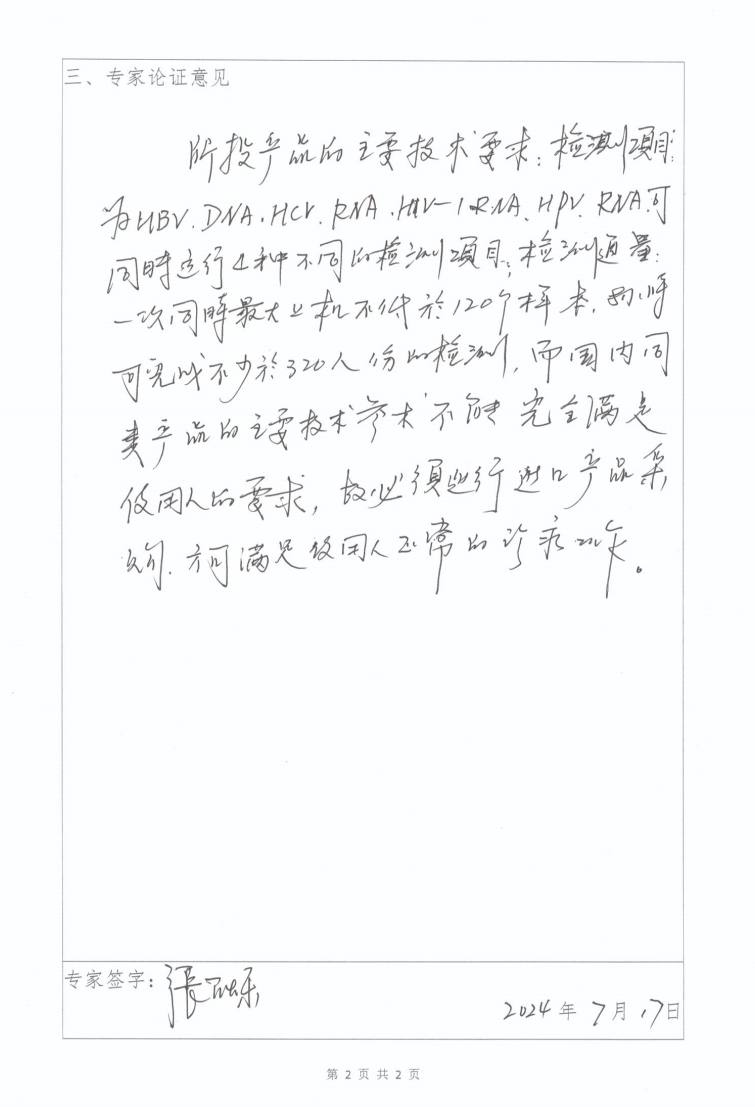 三、专家论证意见
所投产品的主要技术要求：检测项目
为HBV.DNA.HCV.RNA.HIV-1 RNA.HPV.RNA.可
同时运行4种不同的检测项目；检测通量：
一次同时最大上机不低於120个样本，8小时
可完成不少於320人份的检测，而国内同
类产品的主要技术参术不能完全满足
使用人的要求，故必须进行进口产品采
购.方可满足使用人正常的诊疗工作。
专家签字：張
2024年7月17日
第 2 页 共 2 页